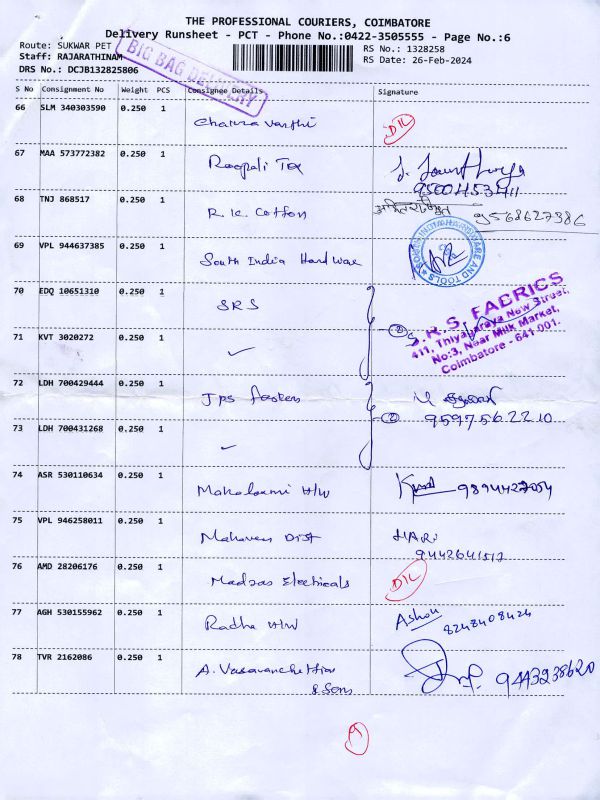 THE PROFESSIONAL COURIERS, COIMBATORE
Delivery Runsheet - PCT - Phone No.:0422-3505555 - Page No.:6
Route: SUKWAR PET
RS No.: 1328258
Staff: RAJARATHINAM
RS Date: 26-Feb-2024
DRS No.: DCJB132825806
BIG BAG DELIVERY
S No Consignment No Weight PCS Consignee Details Signature
66 SLM 340303590 0.250 1
67 MAA 573772382 0.250 1 Roopali Tex
9500453411
68 TNJ 868517 0.250 1 R.K. Cotton 9568627386
69 VPL 944637385 0.250 1 South India Hardware
70 EDQ 10651310 0.250 1 SRS
S.R.S. FABRICS
411, Thiyagaraya New Street,
No:3, Near Milk Market,
Coimbatore - 641 001.
71 KVT 3020272 0.250 1 ✓
72 LDH 700429444 0.250 1 Jps
9597562210
73 LDH 700431268 0.250 1 ✓
74 ASR 530110634 0.250 1 Mahalaxmi H/W 9894427054
75 VPL 946258011 0.250 1 Mahaveer Dist HARI
9442641517
76 AMD 28206176 0.250 1 Madras Electricals
77 AGH 530155962 0.250 1 Radha H/W Ashok
8248408424
78 TVR 2162086 0.250 1 A. Vasavanchettiar
& Sons 9443238620